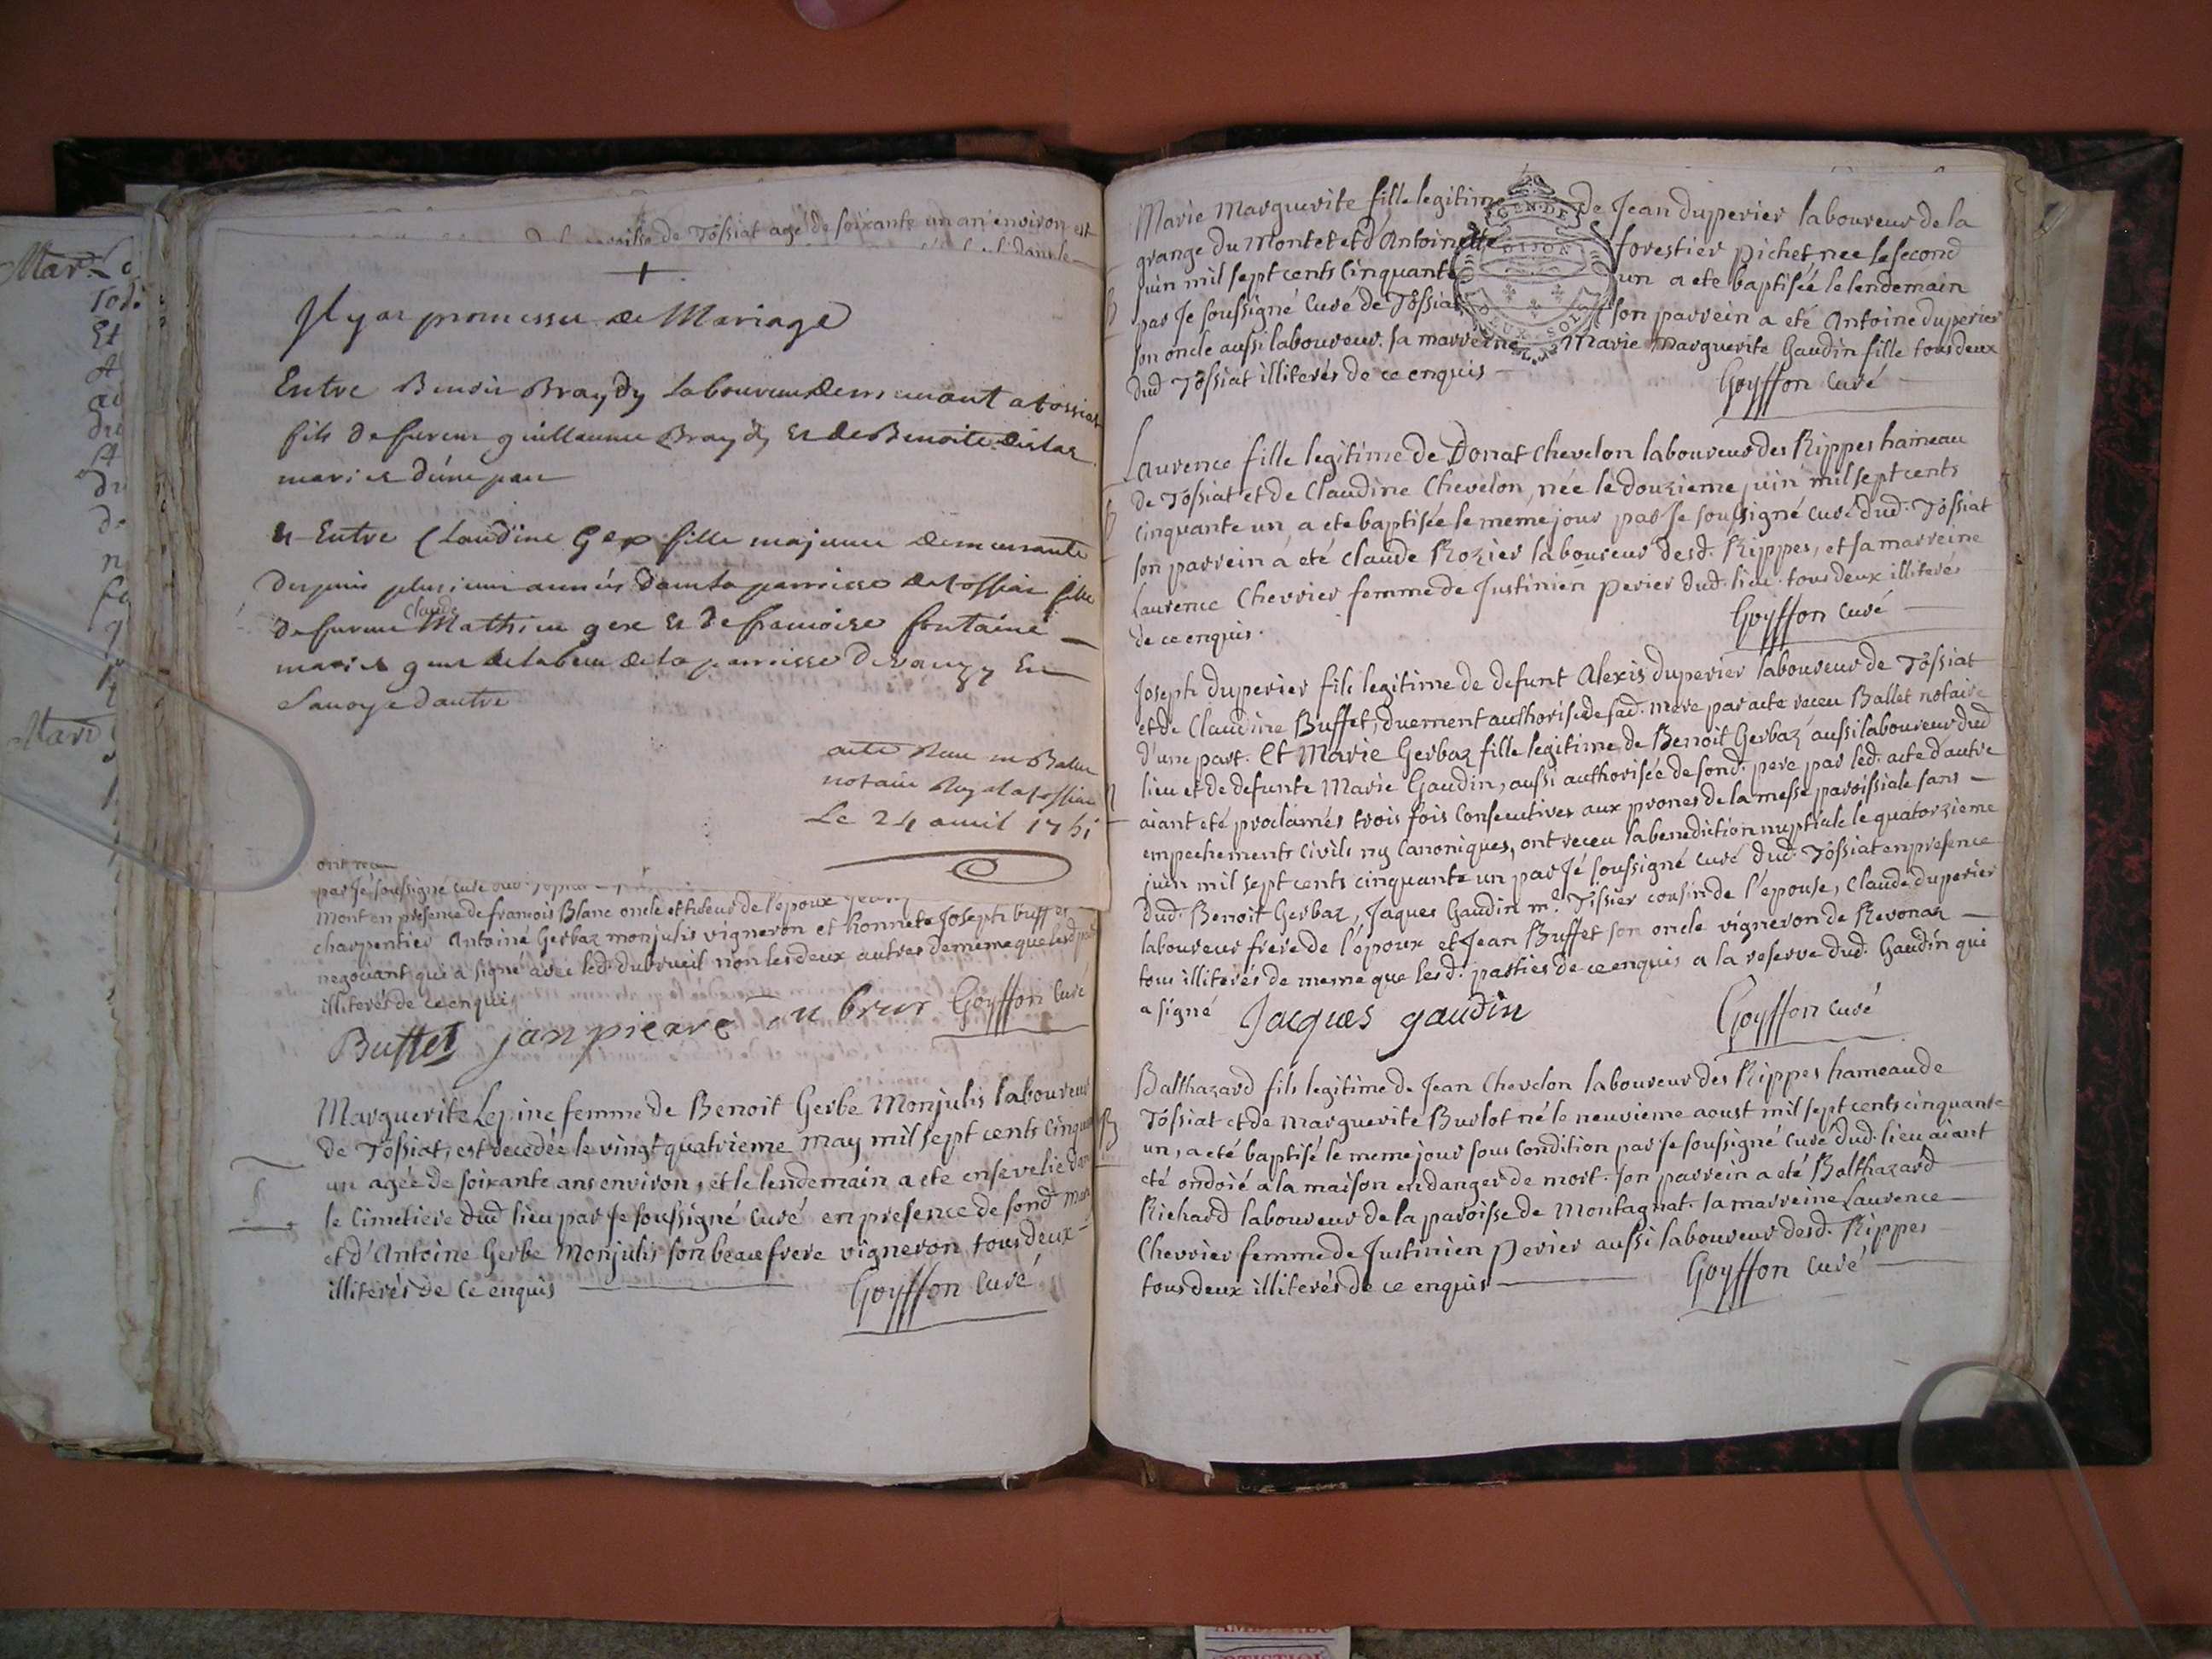 de Tossiat agé de soixante un an environ est
+
Il y a promesse de Mariage
Entre Benoit Braydy Laboureur demeurant a tossiat
fils de feu guillaume Braydy et de Benoite
mariés d'une part
et Entre Claudine Gex fille majeure demeurante
depuis plusieurs années dans la parroisse de tossiat fille
de feu Claude Mathieu gex et de francoise fontaine
mariés de la parroisse de en
Savoye d'autre
acte Reçu me Ballet
notaire Royal a tossiat
Le 24 avril 1751
ont
par Je soussigné curé
mont en présence de francois Blanc oncle et tuteur de l'époux
charpentier Antoine Gerbaz monjulis vigneron et honnete Joseph buffet
negociant qui a signé avec led. dubrueil non les deux autres de meme que lesd.
illiterés de ce enquis
Buffet jan pieare Goyffon curé
Marguerite Lepine femme de Benoit Gerbe Monjulis laboureur
de Tossiat, est decedée le vingt quatrieme may mil sept cents cinquante
un agée de soixante ans environ, et le lendemain a ete ensevelie dans
le cimetiere dud lieu par Je soussigné curé en presence de sond mari
et d'Antoine Gerbe Monjulis son beaufrere vigneron, tous deux
illiterés de ce enquis
Goyffon curé
Marie Marguerite fille legitime de Jean duperier laboureur de la
grange du Montet et d'Antoinette forestier pichet née le second
juin mil sept cents cinquante un a ete baptisée le lendemain
par Je soussigné curé de Tossiat son parrein a eté Antoine duperier
son oncle aussi laboureur. sa marreine Marie Marguerite Gaudin fille tous deux
dud Tossiat illiterés de ce enquis
Goyffon curé
Laurence fille legitime de Donat Chevelon laboureur des Rippes hameau
de Tossiat et de Claudine Chevelon, née le douzieme juin mil sept cents
cinquante un, a ete baptisée le meme jour par Je soussigné curé dud. Tossiat
son parrein a eté Claude Rozier laboureur desd. Rippes, et sa marreine
laurence Chevrier femme de Justinien perier dud. lieu tous deux illiterés
de ce enquis.
Goyffon curé
Joseph duperier fils legitime de defunt Alexis duperier laboureur de Tossiat
et de Claudine Buffet, duement authorisé de sad. mere par acte receu Ballet notaire
d'une part. Et Marie Gerbaz fille legitime de Benoit Gerbaz aussi laboureur dud
lieu et de defunte Marie Gaudin, aussi authorisée de sond. pere par led. acte d'autre
aiant eté proclamés trois fois consecutives aux prones de la messe paroissiale sans
empechements civils ny canoniques, ont receu la benediction nuptiale le quatorzieme
juin mil sept cents cinquante un par Je soussigné curé dud. Tossiat en presence
dud. Benoit Gerbaz, Jaques Gaudin m.e Tissier cousin de l'épouse, Claude duperier
laboureur frere de l'époux et Jean Buffet son oncle vigneron de Revonaz
tous illiterés de meme que lesd. parties de ce enquis a la reserve dud. Gaudin qui
a signé Jacques gaudin
Goyffon curé
Balthazard fils legitime de Jean Chevelon laboureur des Rippes hameau de
Tossiat et de Marguerite Burlot né le neuvieme aoust mil sept cents cinquante
un, a eté baptisé le meme jour sous condition par Je soussigné curé dud. lieu aiant
eté ondoié a la maison en danger de mort. son parrein a eté Balthazard
Richard laboureur de la paroisse de Montagnat. sa marreine Laurence
Chevrier femme de Justinien perier aussi laboureur desd. Rippes
tous deux illiterés de ce enquis
Goyffon curé